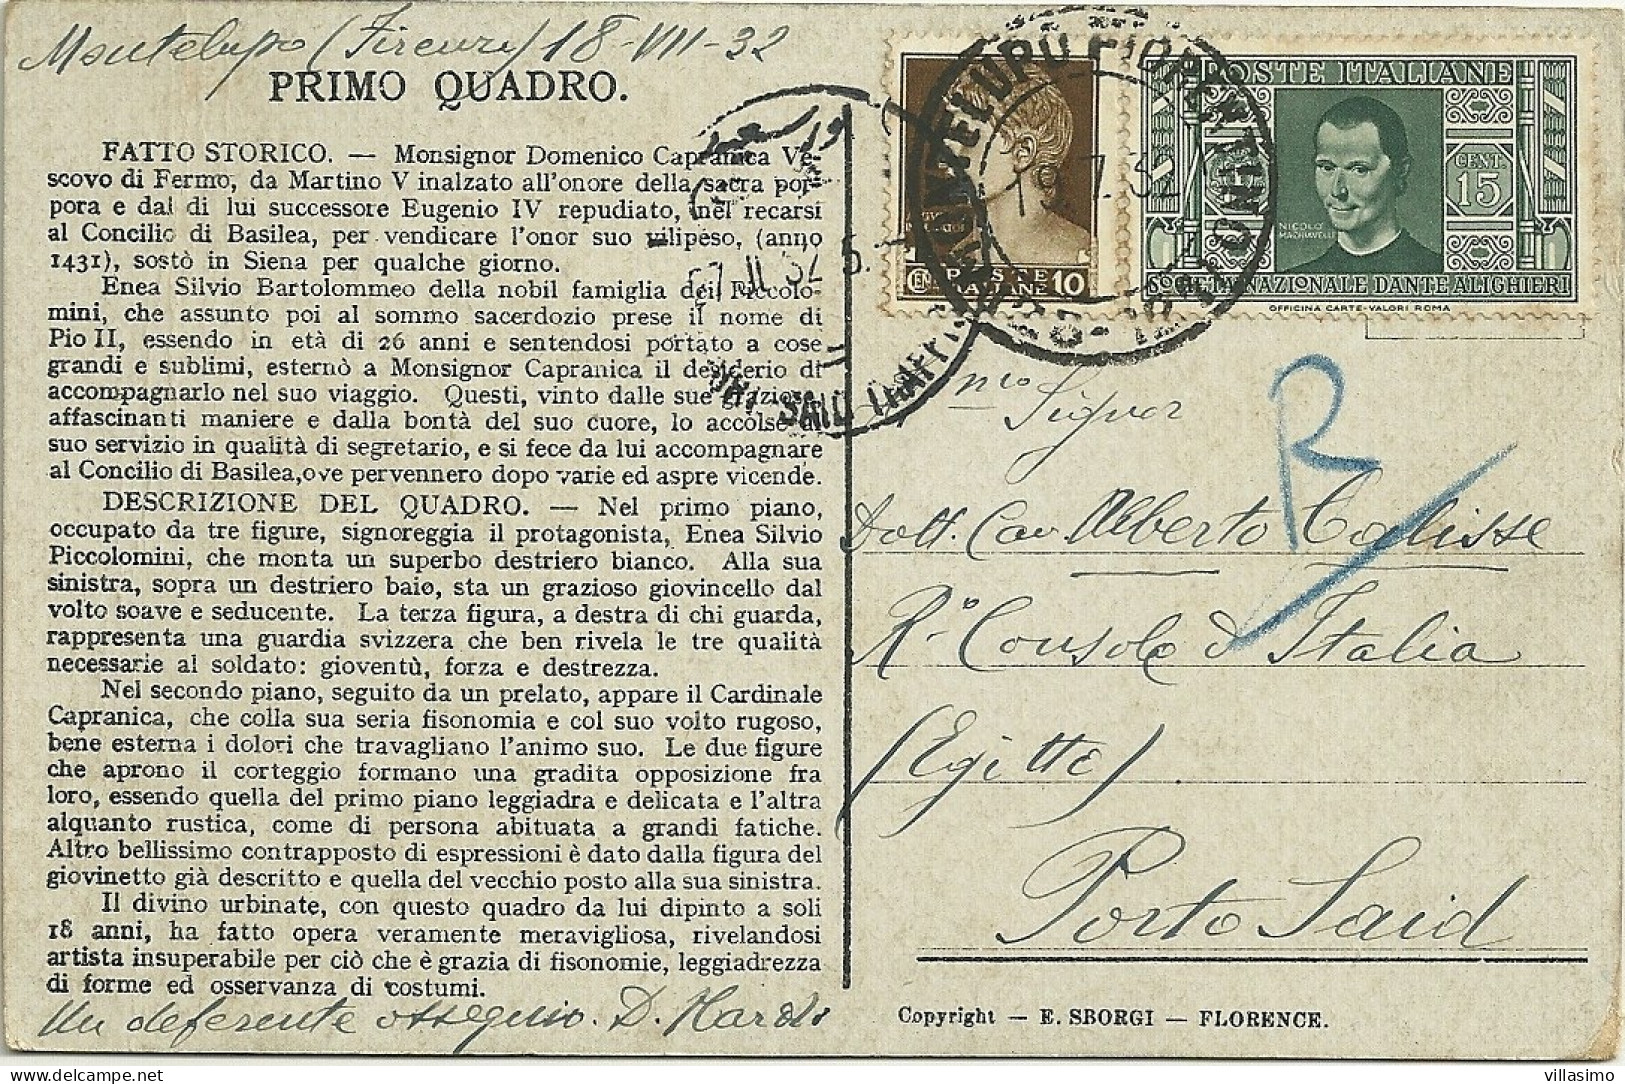 Montelupo (Firenze) 18-VII-32
PRIMO QUADRO.
FATTO STORICO. — Monsignor Domenico Capranica Ve-
scovo di Fermo, da Martino V inalzato all'onore della sacra por-
pora e dal di lui successore Eugenio IV repudiato, nel recarsi
al Concilio di Basilea, per vendicare l'onor suo vilipeso, (anno
1431), sostò in Siena per qualche giorno.
Enea Silvio Bartolommeo della nobil famiglia dei Piccolo-
mini, che assunto poi al sommo sacerdozio prese il nome di
Pio II, essendo in età di 26 anni e sentendosi portato a cose
grandi e sublimi, esternò a Monsignor Capranica il desiderio di
accompagnarlo nel suo viaggio. Questi, vinto dalle sue graziose
affascinanti maniere e dalla bontà del suo cuore, lo accolse al
suo servizio in qualità di segretario, e si fece da lui accompagnare
al Concilio di Basilea,ove pervennero dopo varie ed aspre vicende.
DESCRIZIONE DEL QUADRO. — Nel primo piano,
occupato da tre figure, signoreggia il protagonista, Enea Silvio
Piccolomini, che monta un superbo destriero bianco. Alla sua
sinistra, sopra un destriero baio, sta un grazioso giovincello dal
volto soave e seducente. La terza figura, a destra di chi guarda,
rappresenta una guardia svizzera che ben rivela le tre qualità
necessarie al soldato: gioventù, forza e destrezza.
Nel secondo piano, seguito da un prelato, appare il Cardinale
Capranica, che colla sua seria fisonomia e col suo volto rugoso,
bene esterna i dolori che travagliano l'animo suo. Le due figure
che aprono il corteggio formano una gradita opposizione fra
loro, essendo quella del primo piano leggiadra e delicata e l'altra
alquanto rustica, come di persona abituata a grandi fatiche.
Altro bellissimo contrapposto di espressioni è dato dalla figura del
giovinetto già descritto e quella del vecchio posto alla sua sinistra.
Il divino urbinate, con questo quadro da lui dipinto a soli
18 anni, ha fatto opera veramente meravigliosa, rivelandosi
artista insuperabile per ciò che è grazia di fisonomie, leggiadrezza
di forme ed osservanza di costumi.
Un deferente ossequio. D.
POSTE ITALIANE
10
MONTELUPO FIORENTINO
19.7.32
POSTE ITALIANE
CENT.
15
NICOLO
MACHIAVELLI
SOCIETA NAZIONALE DANTE ALIGHIERI
OFFICINA CARTE-VALORI ROMA
PORT-SAID
32 5.
R
Signor
Dott. Cav Alberto Calisse
R° Console d'Italia
(Egitto)
Porto Said
Copyright — E. SBORGI — FLORENCE.
delcampe.net
villasimo